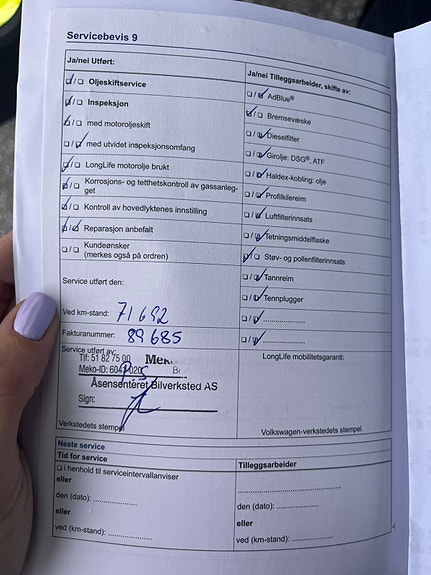 Servicebevis 9
Ja/nei Utført:
☑/☐ Oljeskiftservice
☑/☐ Inspeksjon
☑/☐ med motoroljeskift
☐/☑ med utvidet inspeksjonsomfang
☑/☐ LongLife motorolje brukt
☑/☐ Korrosjons- og tetthetskontroll av gassanleg-
get
☑/☐ Kontroll av hovedlyktenes innstilling
☑/☑ Reparasjon anbefalt
☐/☐ Kundeønsker
(merkes også på ordren)
Service utført den:
Ved km-stand: 71692
Fakturanummer: 89685
Service utført av:
Tlf: 51 82 75 00
Meko-ID:
Åsensenteret Bilverksted AS
Sign:
Verkstedets stempel
Ja/nei Tilleggsarbeider, skifte av:
☐/☑ AdBlue®
☑/☐ Bremsevæske
☐/☑ Dieselfilter
☐/☑ Girolje: DSG®, ATF
☐/☑ Haldex-kobling: olje
☐/☑ Profilkilereim
☐/☑ Luftfilterinnsats
☐/☑ Tetningsmiddelflaske
☑/☐ Støv- og pollenfilterinnsats
☐/☑ Tannreim
☐/☑ Tennplugger
☐/☑ ....................
☐/☑ ....................
LongLife mobilitetsgaranti:
Volkswagen-verkstedets stempel
Neste service
Tid for service
☐ i henhold til serviceintervallanviser
eller
den (dato): ....................
eller
ved (km-stand): ....................
Tilleggsarbeider
....................
den (dato): ....................
eller
ved (km-stand): ....................